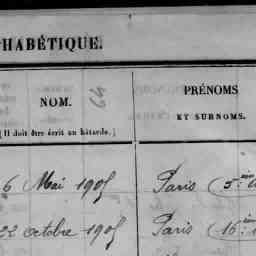 HABÉTIQUE.
NOM. 64 PRÉNOMS
ET SURNOMS.
(Il doit être écrit en bâtarde.)
6 Mai 1905 Paris (5ème
22 octobre 1905 Paris (16: